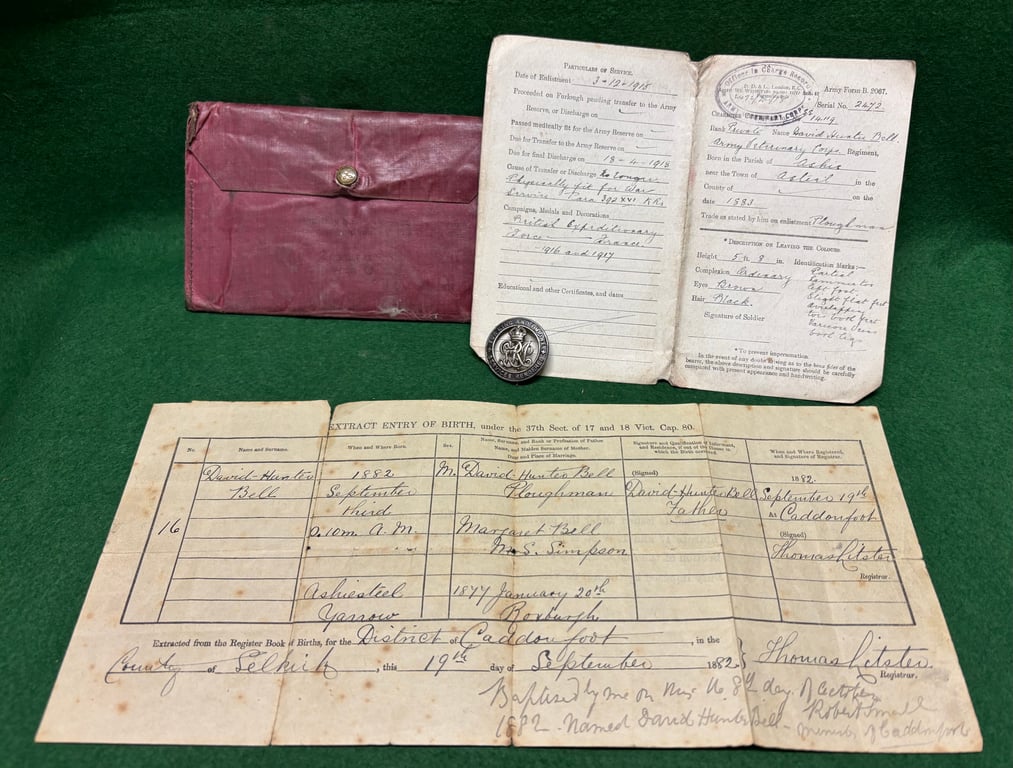 PARTICULARS OF SERVICE.
Date of Enlistment 3-12-1915
Proceeded on Furlough pending transfer to the Army
Reserve, or Discharge on
Passed medically fit for the Army Reserve on
Due for Transfer to the Army Reserve on
Due for final Discharge on 18-4-1918
Cause of Transfer or Discharge No longer
Physically fit for War
Service Para 392 XVI KRs
Campaigns, Medals and Decorations
British Expeditionary
Force France
1916 and 1917
Educational and other Certificates, and dates
Officer in Charge Records
Army Form B. 2067.
Serial No. 2472
Rank Private Name David Hunter Bell
Army Veterinary Corps Regiment,
Born in the Parish of
near the Town of in the
County of on the
date 1883
Trade as stated by him on enlistment Ploughman
*DESCRIPTION ON LEAVING THE COLOURS.
Height 5 ft. 8 in. Identification Marks:—
Complexion Ordinary Partial
Eyes Brown left foot
Hair Black. Slight flat feet
overlapping
toes both feet
Varicose veins
both legs
Signature of Soldier
*To prevent impersonation.
In the event of any doubt arising as to the bona fides of the
bearer, the above description and signature should be carefully
compared with present appearance and handwriting.
GRI
EXTRACT ENTRY OF BIRTH, under the 37th Sect. of 17 and 18 Vict. Cap. 80.
No. Name and Surname. When and Where Born. Sex. Name, Surname, and Rank or Profession of Father
Name, and Maiden Surname of Mother.
Date and Place of Marriage.
Signature and Qualification of Informant,
and Residence, if out of the House in
which the Birth occurred.
When and Where Registered,
and Signature of Registrar.
16
David Hunter
Bell
1882
September
third
0. 10m. A.M.
Ashiesteel
Yarrow
M.
David Hunter Bell
Ploughman
Margaret Bell
M.S. Simpson
1877 January 20th
Roxburgh
(Signed)
David Hunter Bell
Father
1882.
September 19th
At Caddonfoot
(Signed)
Thomas Litster
Registrar.
Extracted from the Register Book of Births, for the District of Caddonfoot, in the
County of Selkirk, this 19th day of September 1882. Thomas Litster.
Registrar.
Baptised by me on this the 8th day of October
1882. Named David Hunter Bell - Robert Small
minister of Caddonfoot